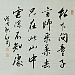 松下問童子
言師采藥去
只在此山中
雲深不知處